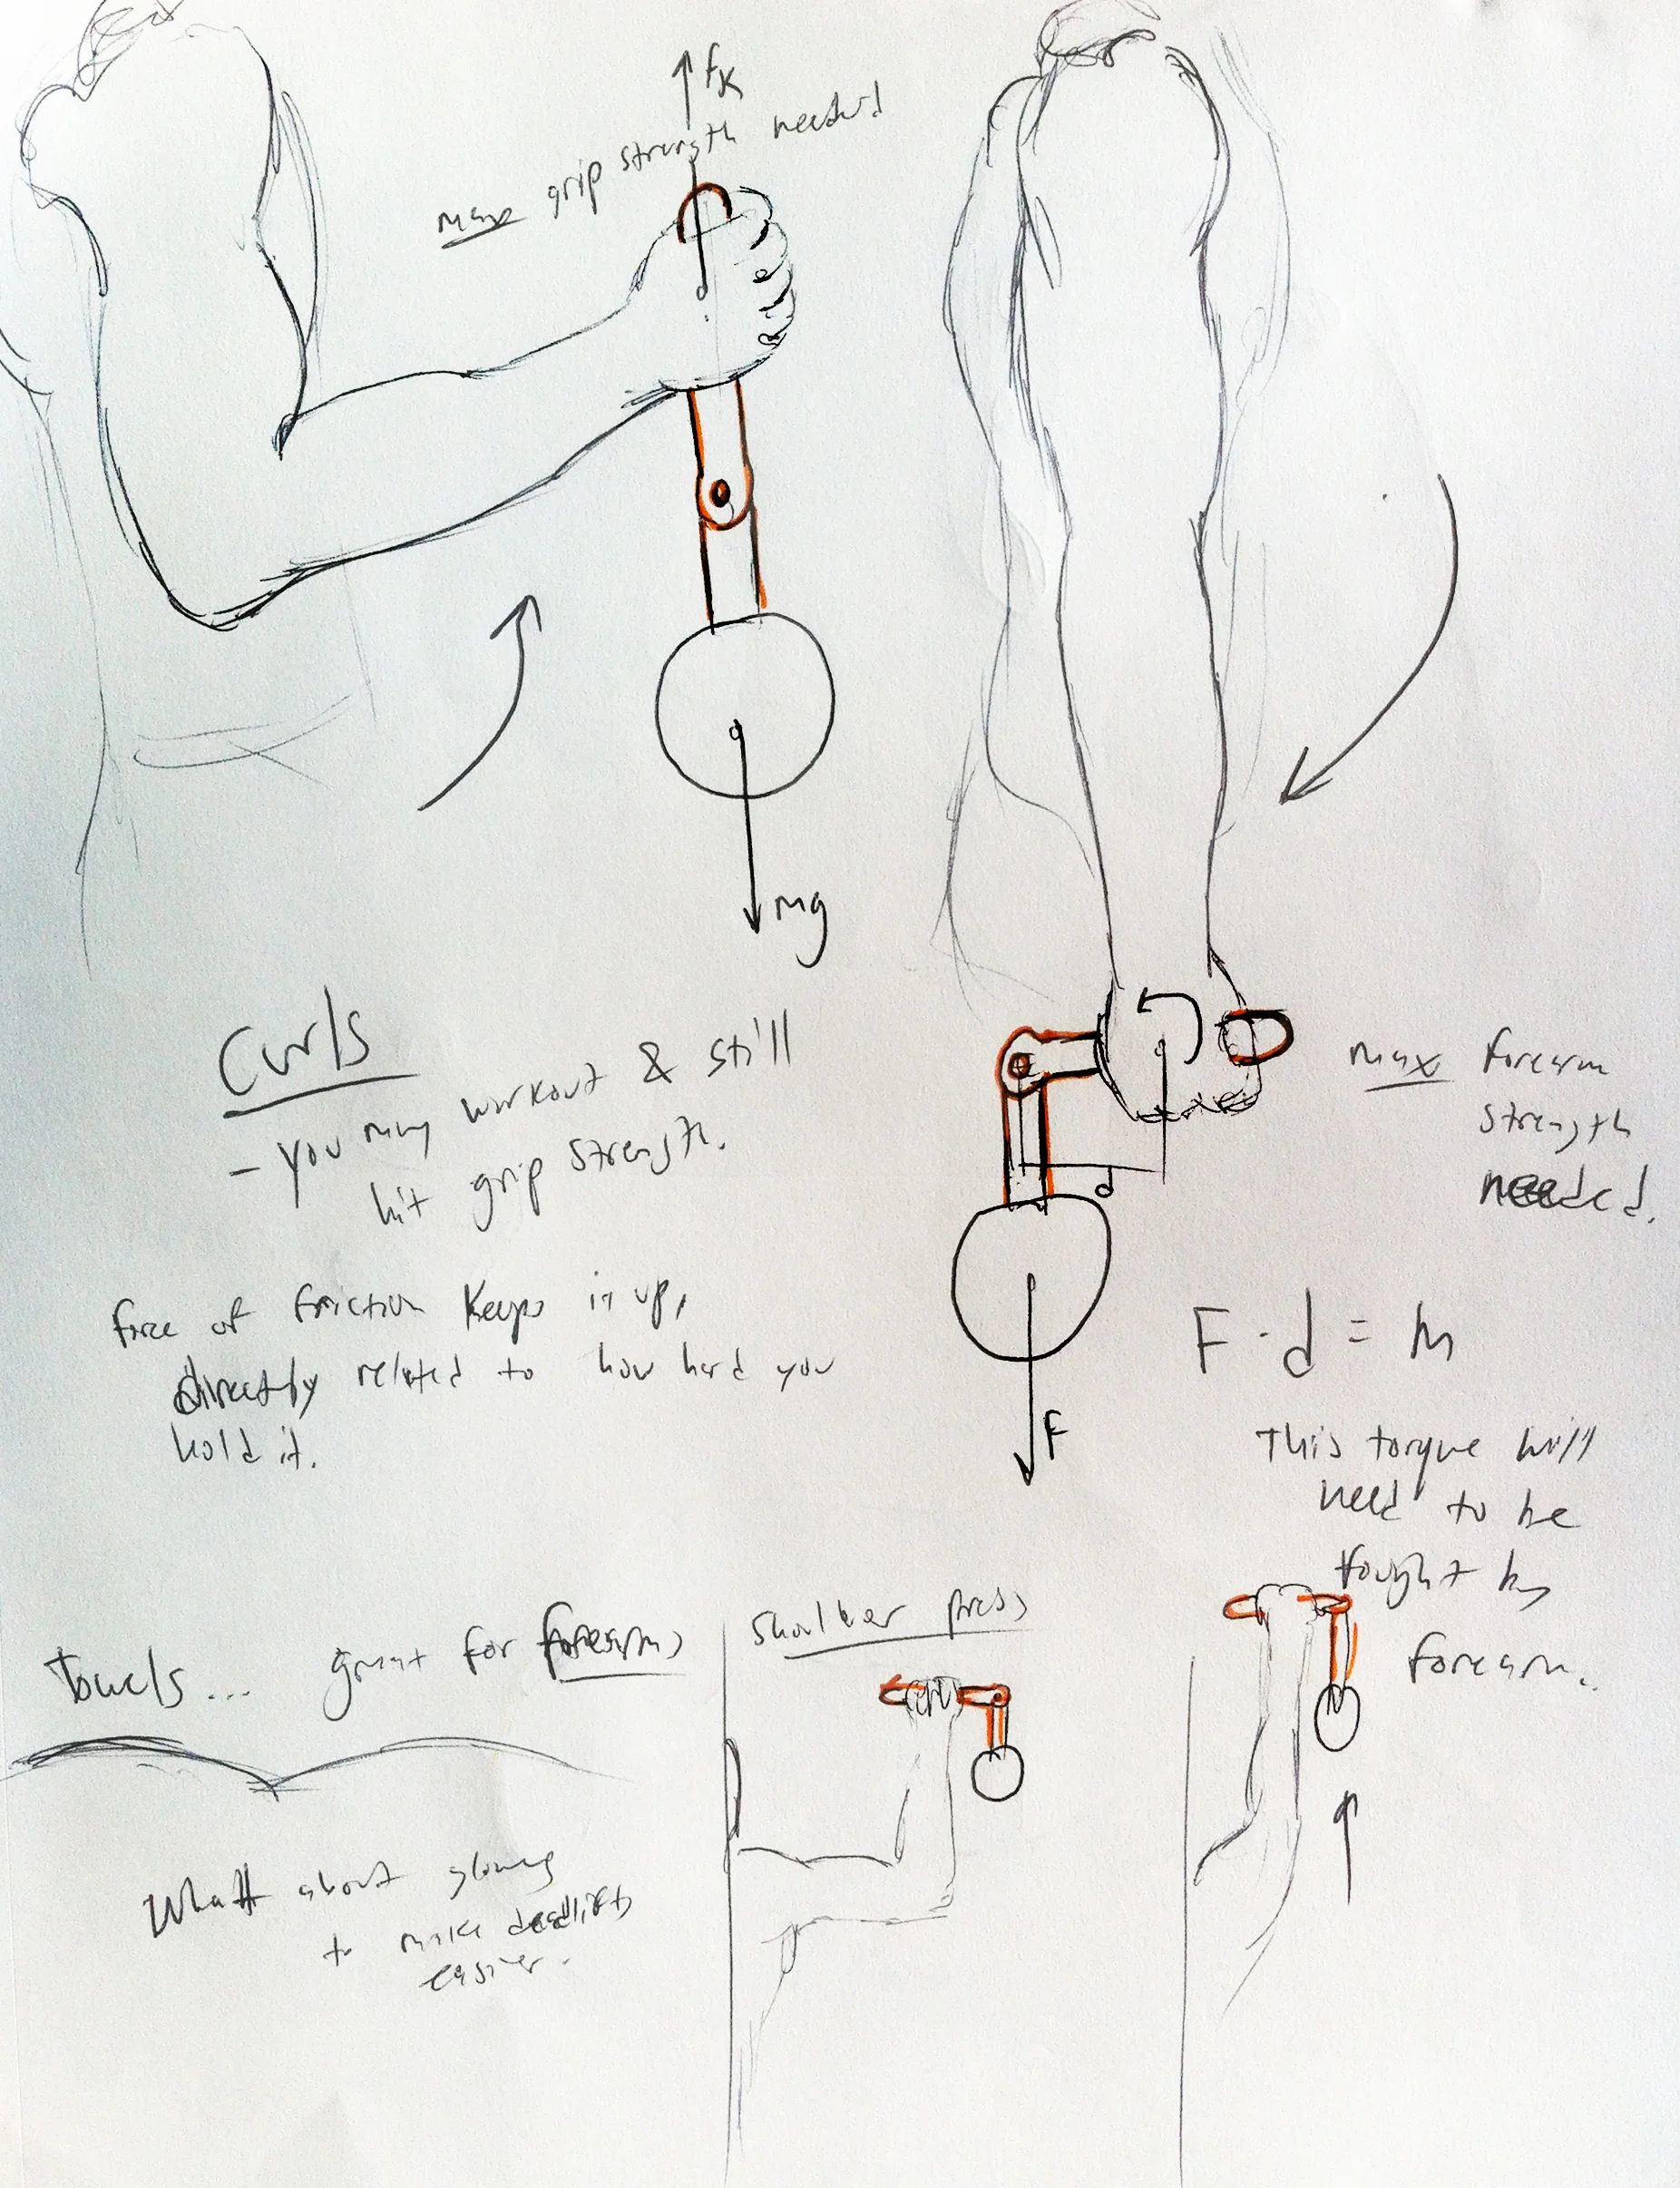 Fk
max grip strength needed
mg
Curls
- you may workout & still
hit grip strength.
force of friction keeps it up,
directly related to how hard you
hold it.
max forearm
strength
needed.
d
F
F · d = M
This torque will
need to be
fought by
forearm..
Towels... great for forearms
shoulder press
What about
to make deadlifts
easier.